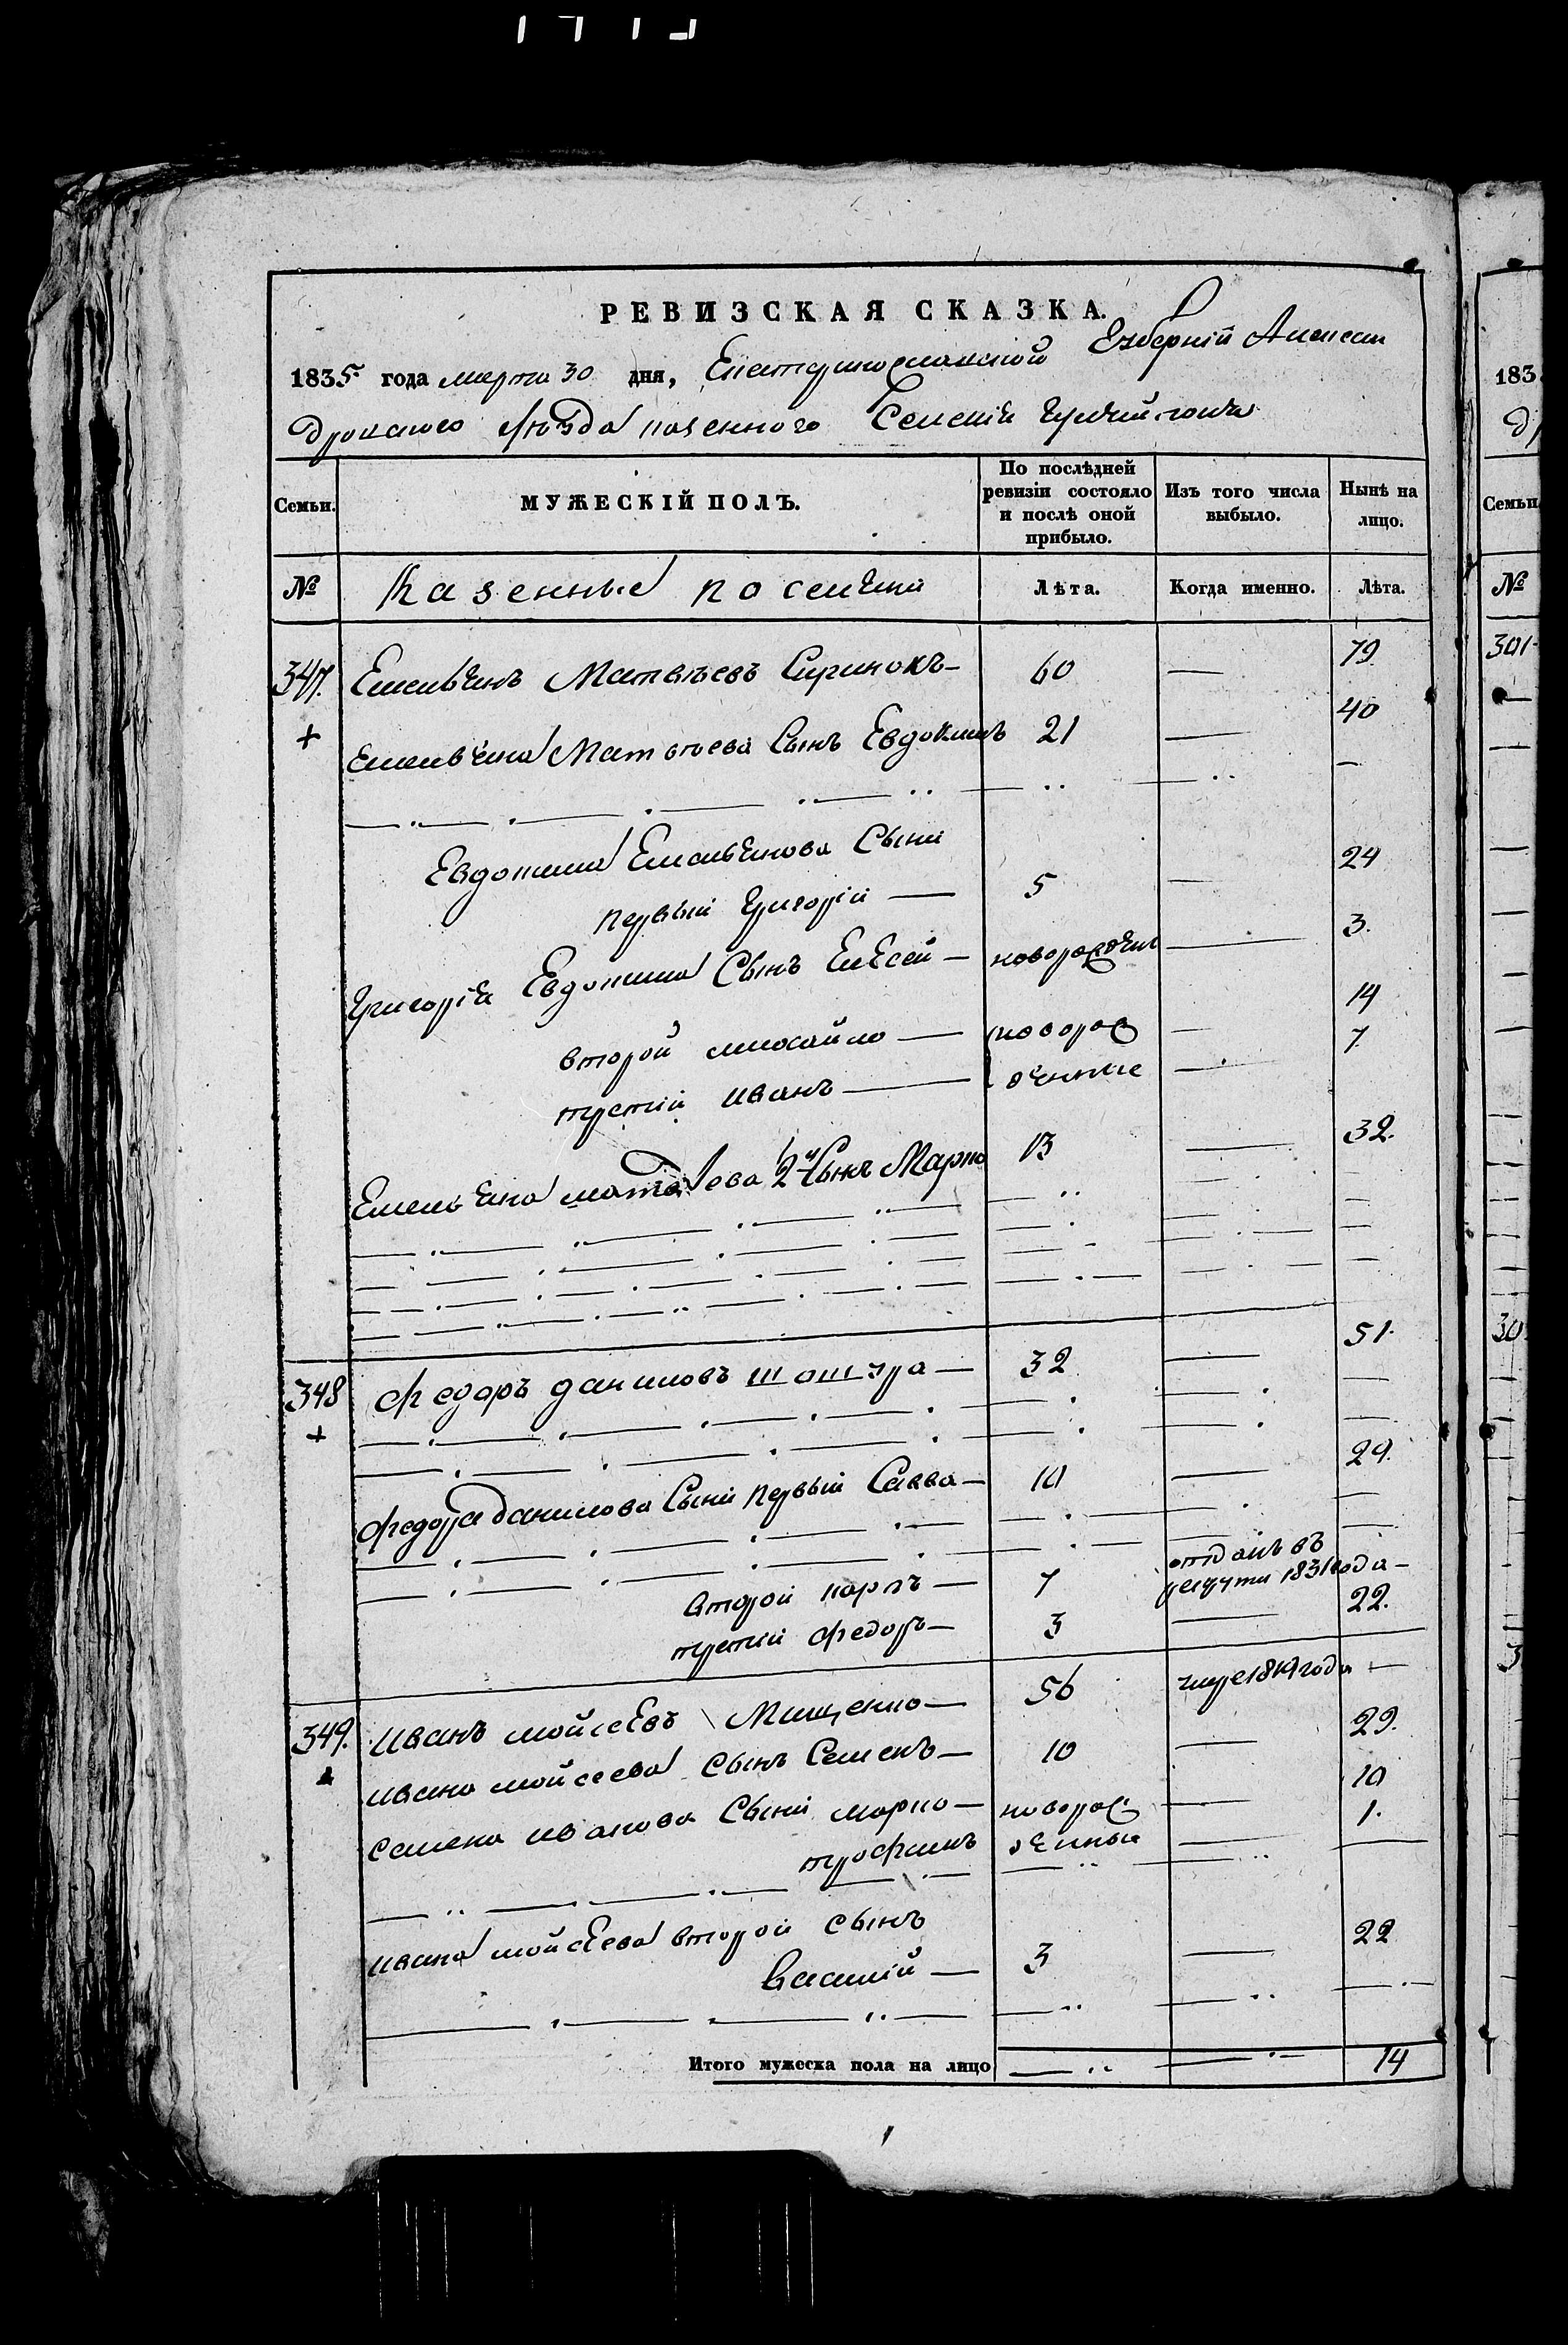 РЕВИЗСКАЯ СКАЗКА.
1835 года марта 30 дня, Екатеринославской Губерніи Алексан
дровского Уѣзда казенного Селенія
183
Семьи. МУЖЕСКІЙ ПОЛЪ. По послѣдней ревизіи состояло и послѣ оной прибыло. Изъ того числа выбыло. Нынѣ на лицо. Семьи
№ Казенные поселяни Лѣта. Когда именно. Лѣта. №
347. Емельянъ Матвѣевъ — 60 — 79. 301
+ Емельяна Матвѣева Сынъ Евдокимъ 21 — 40
Евдокима Емельянова Сыни
первый Григорій — 5 — 24
Григорія Евдокима Сынъ Елесей — новорожден — 3.
второй михайло — новорож — 14
третій иванъ — денные — 7
Емельяна матвѣева 2й Сынъ Марко 13 — 32.
348 федоръ даниловъ шаптура — 32 — 51. 30
+
федора данилова Сыни первый Савва — 10 — 29.
второй карпъ — 7 отданъ въ рекрути 1831 года —
третій федоръ — 3 — 22.
349. иванъ мойсеевъ Мищенко — 56 умре 1819 года — 3
ивана мойсеева Сынъ Семенъ — 10 — 29.
семена иванова Сыни марко — новорож — 10
трофимъ денныи — 1.
ивана мойсеева второй сынъ
василій — 3 — 22
Итого мужеска пола на лицо — 14